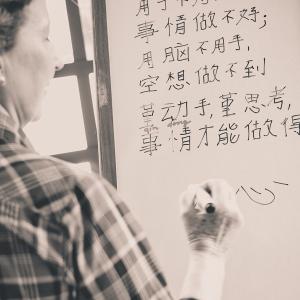 用手不用
事情做不好;
用脑不用手,
空想做不到
堇动手,堇思考,
dong
事情才能做得
心